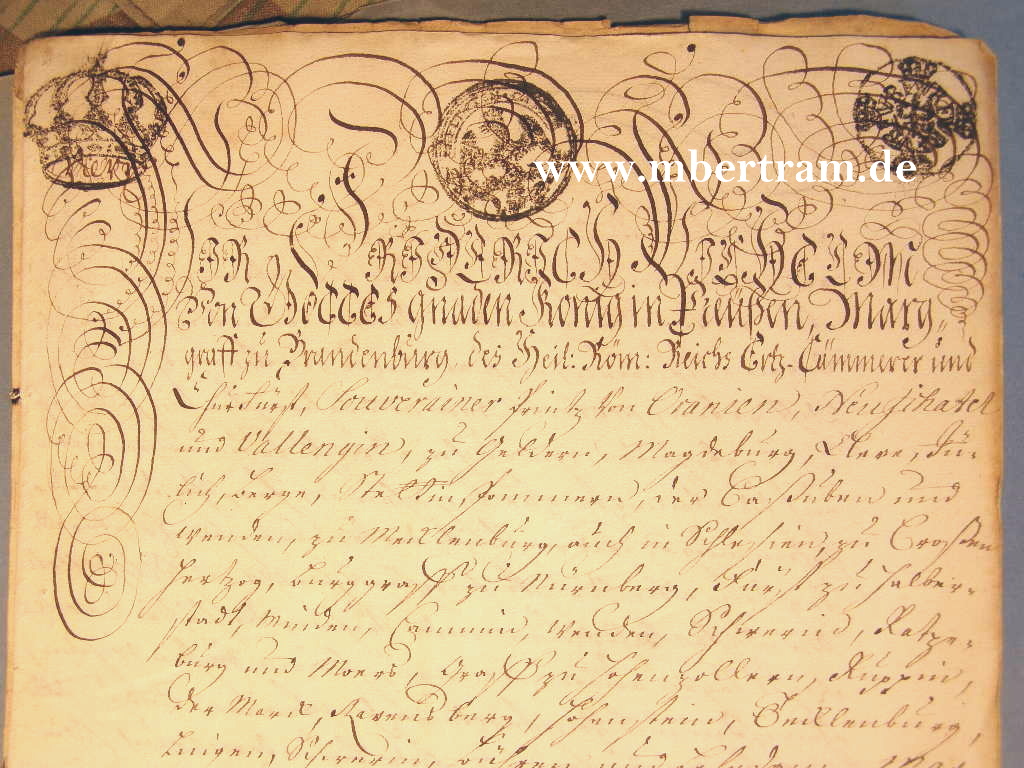 www.mbertram.de
WIR FRIDERICH WILHELM
Von GOTTES gnaden König in Preußen, Marg„
graff zu Brandenburg, des Heil: Röm: Reichs Ertz-Cämmerer und
Churfürst, Souverainer Printz von Oranien, Neufchatel
und Vallengin, zu Geldern, Magdeburg, Cleve, Jü-
lich, Berge, Stettin, Pommern, der Cassuben und
Wenden, zu Mecklenburg, auch in Schlesien, zu Crossen
Hertzog, Burggraff zu Nürnberg, Fürst zu Halber-
stadt, Minden, Cammin, Wenden, Schwerin, Ratze-
burg und Moers, Graff zu Hohenzollern, Ruppin,
der Marck, Ravensberg, Hohenstein, Tecklenburg,
Lingen, Schwerin, Bühren und Lehrdam,